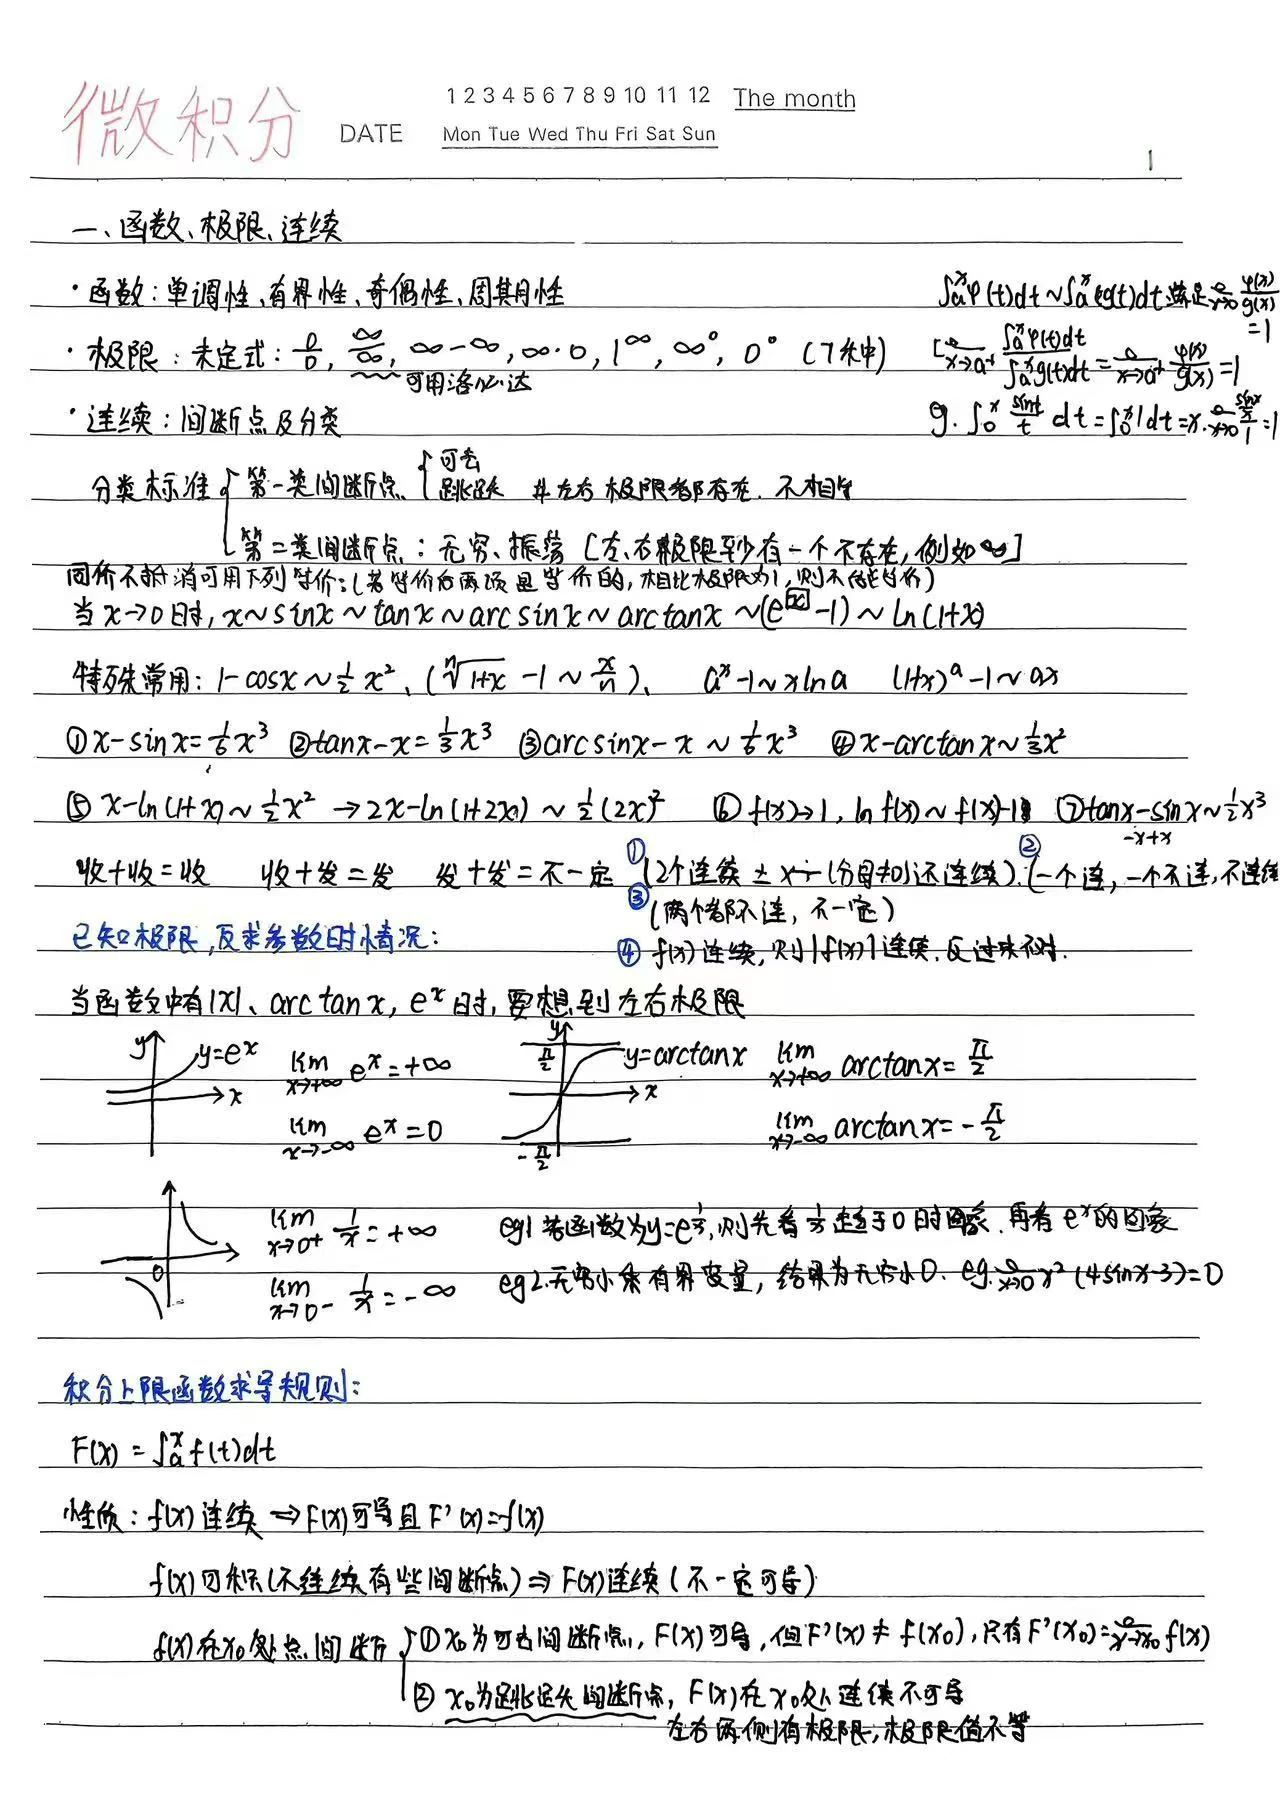 微积分
1 2 3 4 5 6 7 8 9 10 11 12 The month
DATE Mon Tue Wed Thu Fri Sat Sun
1
一、函数、极限、连续
·函数：单调性、有界性、奇偶性、周期性
∫ₐˣφ(t)dt~∫ₐˣg(t)dt 满足 lim x→0 φ(x)/g(x) =1
·极限：未定式：0/0, ∞/∞, ∞-∞, ∞·0, 1^∞, ∞⁰, 0⁰ (7种)
可用洛必达
[lim x→a⁺ ∫ₐˣφ(t)dt/∫ₐˣg(t)dt = lim x→a⁺ φ(x)/g(x) =1
·连续：间断点及分类
eg. ∫₀ˣ sint/t dt=∫₀ˣ1dt=x. lim x→0 (sinx/x)/1=1
分类标准 { 第一类间断点 { 可去
跳跃 #左右极限都存在.不相等
第二类间断点：无穷、振荡 [左、右极限至少有一个不存在,例如∞]
同阶不抵消可用下列等价：(若等价后两项是等价的,相比极限为1,则不能等价)
当x→0时, x~sinx~tanx~arcsinx~arctanx~(e^x-1)~ln(1+x)
特殊常用：1-cosx~½x²、(ⁿ√(1+x) -1~x/n)、 aˣ-1~xlna (1+x)ᵃ-1~ax
①x-sinx=1/6x³ ②tanx-x=1/3x³ ③arcsinx-x~1/6x³ ④x-arctanx~1/3x²
⑤x-ln(1+x)~½x² →2x-ln(1+2x)~½(2x)² ⑥f(x)→1, lnf(x)~f(x)-1 ⑦tanx-sinx~½x³
-x+x
收+收=收 收+发=发 发+发=不一定 ①(2个连续±×÷(分母≠0)还连续). ②(一个连,一个不连,不连续
③(两个都不连,不一定)
已知极限,反求参数时情况：
④f(x)连续,则|f(x)|连续,反过来不对.
当函数中有|x|、arctanx, eˣ时,要想到左右极限
y y=eˣ x lim x→+∞ eˣ=+∞ y π/2 y=arctanx x lim x→+∞ arctanx=π/2
lim x→-∞ eˣ=0 -π/2 lim x→-∞ arctanx=-π/2
0 lim x→0⁺ 1/x=+∞ eg1 若函数为y=e^(1/x),则先看1/x趋于0时图象.再看eˣ的图象
lim x→0⁻ 1/x=-∞ eg2.无穷小乘有界变量,结果为无穷小0. eg. lim x→0 x²(4sinx-3)=0
积分上限函数求导规则：
F(x)=∫ₐˣf(t)dt
性质：f(x)连续⇒F(x)可导且F'(x)=f(x)
f(x)可积(不连续有些间断点)⇒F(x)连续(不一定可导)
f(x)在x₀处点间断 { ①x₀为可去间断点, F(x)可导,但F'(x)≠f(x₀),只有F'(x₀)=lim x→x₀ f(x)
②x₀为跳跃间断点, F(x)在x₀处连续不可导
左右两侧有极限,极限值不等